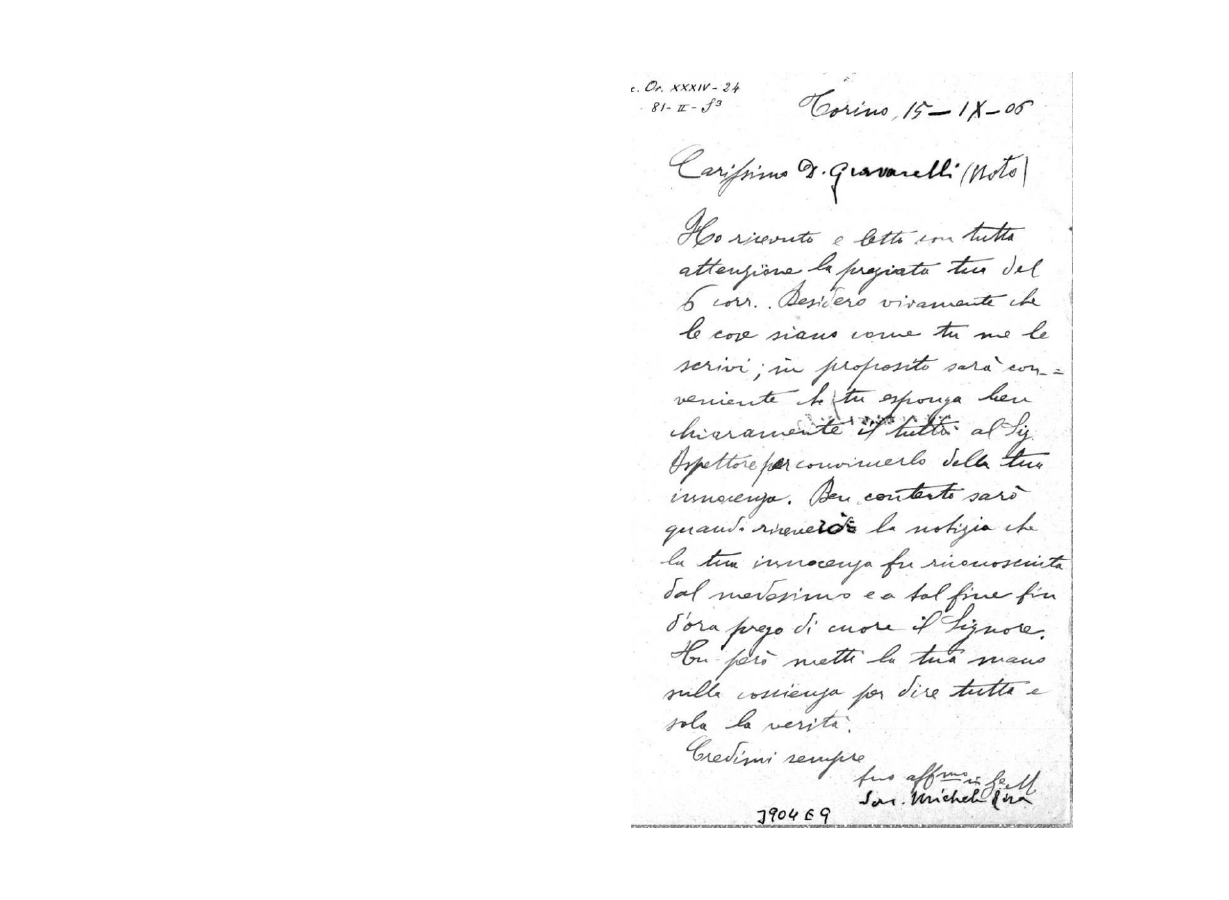 c. Or. XXXIV - 24
81 - II - f3
Torino, 15 - IX - 06
Carissimo D. (Noto)
Ho ricevuto e letto con tutta
attenzione la pregiata tua del
6 corr.. Desidero vivamente che
le cose siano come tu me le
scrivi; in proposito sarà con-=
veniente che tu esponga ben
chiaramente il tutto al Sig.
Ispettore per convincerlo della tua
innocenza. Ben contento sarò
quando riceverò la notizia che
la tua innocenza fu riconosciuta
dal medesimo e a tal fine fin
d'ora prego di cuore il Signore.
Tu però metti la tua mano
sulla coscienza per dire tutta e
sola la verità.
Credimi sempre
tuo affmo in G. e M
Sac. Michele Rua
3904 E 9